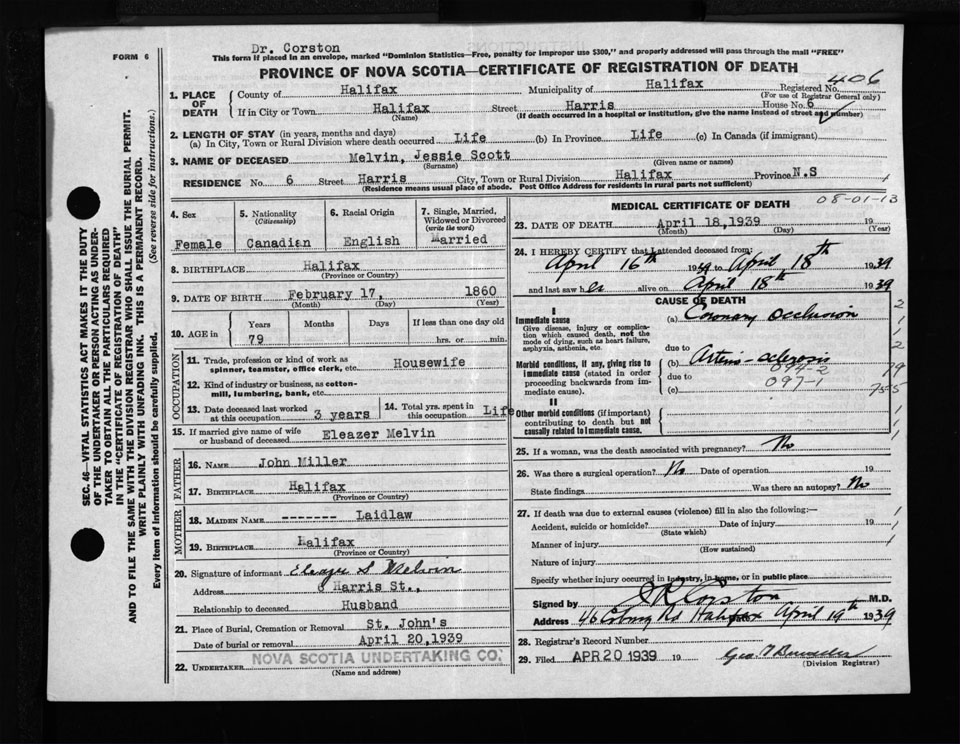 Dr. Corston
FORM 6
This form if placed in an envelope, marked "Dominion Statistics—Free, penalty for improper use $300," and properly addressed will pass through the mail "FREE"
PROVINCE OF NOVA SCOTIA—CERTIFICATE OF REGISTRATION OF DEATH
406
1. PLACE OF DEATH
County of Halifax Municipality of Halifax Registered No.
(For use of Registrar General only)
If in City or Town Halifax Street Harris House No. 6
(Name) (If death occurred in a hospital or institution, give the name instead of street and number)
2. LENGTH OF STAY (in years, months and days)
(a) In City, Town or Rural Division where death occurred Life (b) In Province Life (c) In Canada (if immigrant)
3. NAME OF DECEASED Melvin, Jessie Scott
(Surname) (Given name or names)
RESIDENCE No. 6 Street Harris City, Town or Rural Division Halifax Province N.S
(Residence means usual place of abode. Post Office Address for residents in rural parts not sufficient)
08-01-13
4. Sex
Female
5. Nationality
(Citizenship)
Canadian
6. Racial Origin
English
7. Single, Married, Widowed or Divorced
(write the word)
Married
8. BIRTHPLACE Halifax
(Province or Country)
9. DATE OF BIRTH February 17, 1860
(Month) (Day) (Year)
10. AGE in
Years Months Days If less than one day old
79 hrs. or min.
OCCUPATION
11. Trade, profession or kind of work as spinner, teamster, office clerk, etc. Housewife
12. Kind of industry or business, as cotton-mill, lumbering, bank, etc.
13. Date deceased last worked at this occupation 3 years
14. Total yrs. spent in this occupation Life
15. If married give name of wife or husband of deceased Eleazer Melvin
FATHER
16. NAME John Miller
17. BIRTHPLACE Halifax
(Province or Country)
MOTHER
18. MAIDEN NAME -------- Laidlaw
19. BIRTHPLACE Halifax
(Province or Country)
20. Signature of informant Eleazer S Melvin
Address 6 Harris St.,
Relationship to deceased Husband
21. Place of Burial, Cremation or Removal St. John's
Date of burial or removal April 20,1939
22. UNDERTAKER NOVA SCOTIA UNDERTAKING CO.
(Name and address)
MEDICAL CERTIFICATE OF DEATH
23. DATE OF DEATH April 18,1939 19
(Month) (Day) (Year)
24. I HEREBY CERTIFY that I attended deceased from:
April 16th 1939 to April 18th 1939
and last saw her alive on April 18th 1939
CAUSE OF DEATH
I
Immediate cause
Give disease, injury or complication which caused death, not the mode of dying, such as heart failure, asphyxia, asthenia, etc.
(a) Coronary occlusion
due to
Morbid conditions, if any, giving rise to immediate cause (stated in order proceeding backwards from immediate cause).
(b) Arterio-sclerosis
094-2
due to
097-1
(c)
II
Other morbid conditions (if important) contributing to death but not causally related to immediate cause.
79
25. If a woman, was the death associated with pregnancy? No
26. Was there a surgical operation? No Date of operation 19
State findings Was there an autopsy? No
27. If death was due to external causes (violence) fill in also the following:—
Accident, suicide or homicide? Date of injury 19
(State which)
Manner of injury
(How sustained)
Nature of injury
Specify whether injury occurred in industry, in home, or in public place
Signed by Corston M.D.
Address 46 Rd Halifax April 19th 1939
28. Registrar's Record Number
29. Filed APR 20 1939 19
(Division Registrar)
SEC. 46—VITAL STATISTICS ACT MAKES IT THE DUTY
OF THE UNDERTAKER OR PERSON ACTING AS UNDER-
TAKER TO OBTAIN ALL THE PARTICULARS REQUIRED
IN THE "CERTIFICATE OF REGISTRATION OF DEATH"
AND TO FILE THE SAME WITH THE DIVISION REGISTRAR WHO SHALL ISSUE THE BURIAL PERMIT.
WRITE PLAINLY WITH UNFADING INK. THIS IS A PERMANENT RECORD.
Every item of information should be carefully supplied. (See reverse side for instructions.)